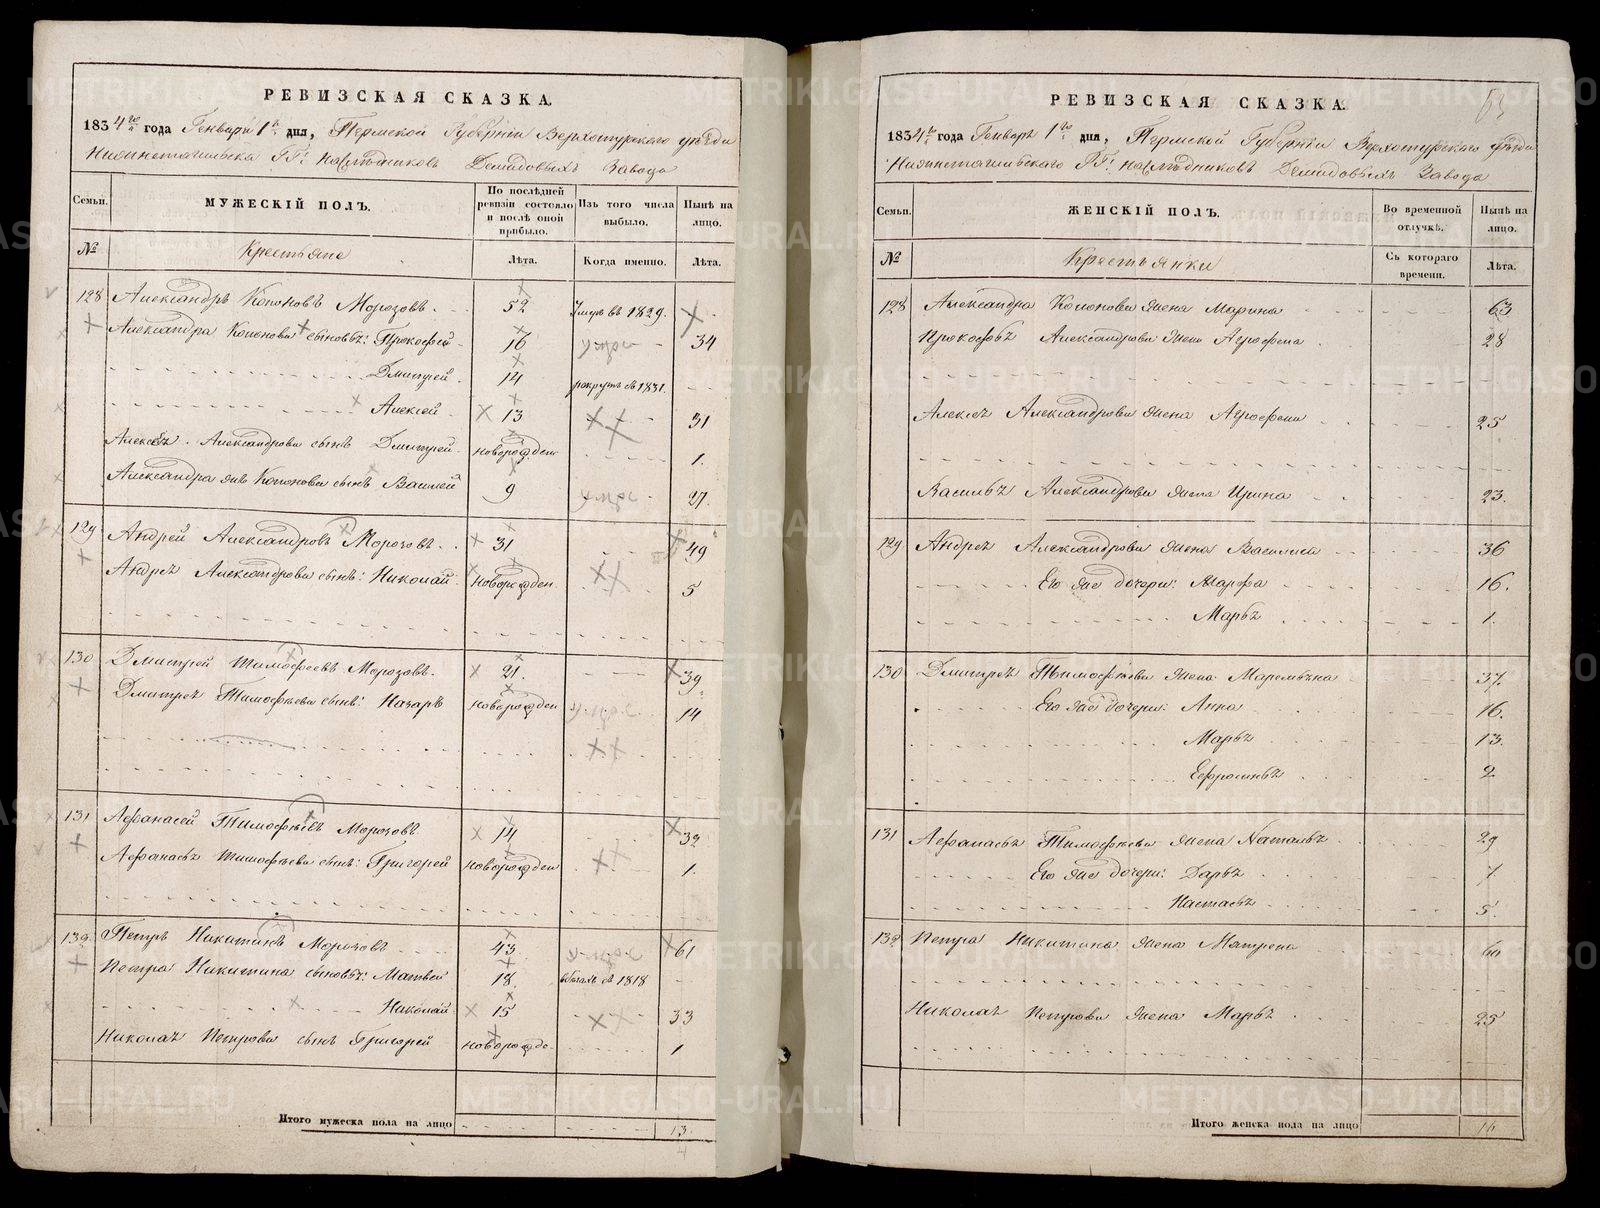 РЕВИЗСКАЯ СКАЗКА.
1834го года Генваря 1го дня, Пермской Губерніи Верхотурскаго уѣзда
Нижнетагильска ГГ: наслѣдниковъ Демидовыхъ Завода
Семьи. МУЖЕСКІЙ ПОЛЪ. По послѣдней ревизіи состояло и послѣ оной прибыло. Изъ того числа выбыло. Нынѣ на лицо.
№ Крестьяне Лѣта. Когда именно. Лѣта.
128 Александръ Кононовъ Морозовъ. 52 Умеръ въ 1829.
Александра Кононова сыновья: Прокофей 16 умре 34
Дмитрей 14 рекрутъ въ 1831.
Алексей 13 31
Алексѣя Александрова сынъ Дмитрей новорожден 1.
Александра Кононова сынъ Василей 9 умре 27.
129 Андрей Александровъ Морозовъ 31 49
Андрея Александрова сынъ: Николай новорожден 5
130 Дмитрей Тимофеевъ Морозовъ. 21. 39
Дмитрея Тимофѣева сынъ: Назаръ новорожден 14
131 Афанасей Тимофѣевъ Морозовъ 14 32
Афанасья Тимофѣева сынъ: Григорей новорожден 1.
132 Петръ Никитинъ Морозовъ 43 61
Петра Никитина сыновья: Матвей 18. въ бѣгахъ съ 1818
Николай 15 33
Николая Петрова сынъ Григорей новорожде. 1
Итого мужеска пола на лицо 13.
РЕВИЗСКАЯ СКАЗКА.
1834го года Генваря 1го дня, Пермской Губерніи Верхотурскаго уѣзда
Нижнетагильскаго ГГ: наслѣдниковъ Демидовыхъ Завода
Семьи. ЖЕНСКІЙ ПОЛЪ. Во временной отлучкѣ. Нынѣ на лицо.
№ Крестьянки Съ котораго времени. Лѣта.
128 Александра Кононова жена Марина 63
Прокофья Александрова жена Агрофена 28
Алексея Александрова жена Агрофена 25
Василья Александрова жена Ирина 23.
129 Андрея Александрова жена Василиса 36
Его же дочери: Марфа 16.
Марья 1.
130 Дмитрея Тимофѣева жена Маремьяна 37.
Его же дочери: Анна 16.
Марья 13.
Ефросинья 2
131 Афанасья Тимофѣева жена Наталья 29
Его же дочери: Дарья 7
Настасья 5.
132 Петра Никитина жена Матрена 60
Николая Петрова жена Марья 25
Итого женска пола на лицо 16
METRIKI.GASO-URAL.RU